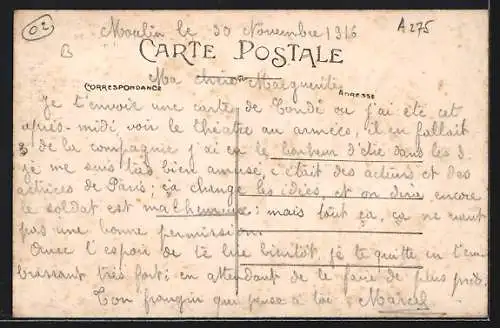 02
Moulin le 30 Novembre 1916
A 275
B
CARTE POSTALE
Ma chère Marguerite
CORRESPONDANCE
ADRESSE
Je t'envoie une carte de Condé ou j'ai été cet
après-midi, voir le théâtre au armées, il en fallait
3 de la compagnie j'ai eu le bonheur d'être dans les 3.
je me suis très bien amusé, c'était des acteurs et des
actrices de Paris; ça change les idées, et on dira encore
le soldat est malheureux: mais tout ça, ça ne vaut
pas une bonne permission.
Avec l'espoir de te lire bientôt, je te quitte en t'em-
brassant très fort: en attendant de le faire de plus près.
Ton frangin qui pense à toi Marcel